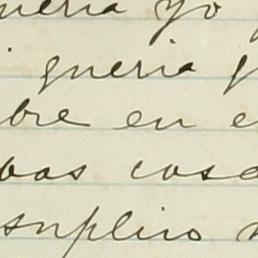 queria yo
queria
bre en e
bas cosa
suplico